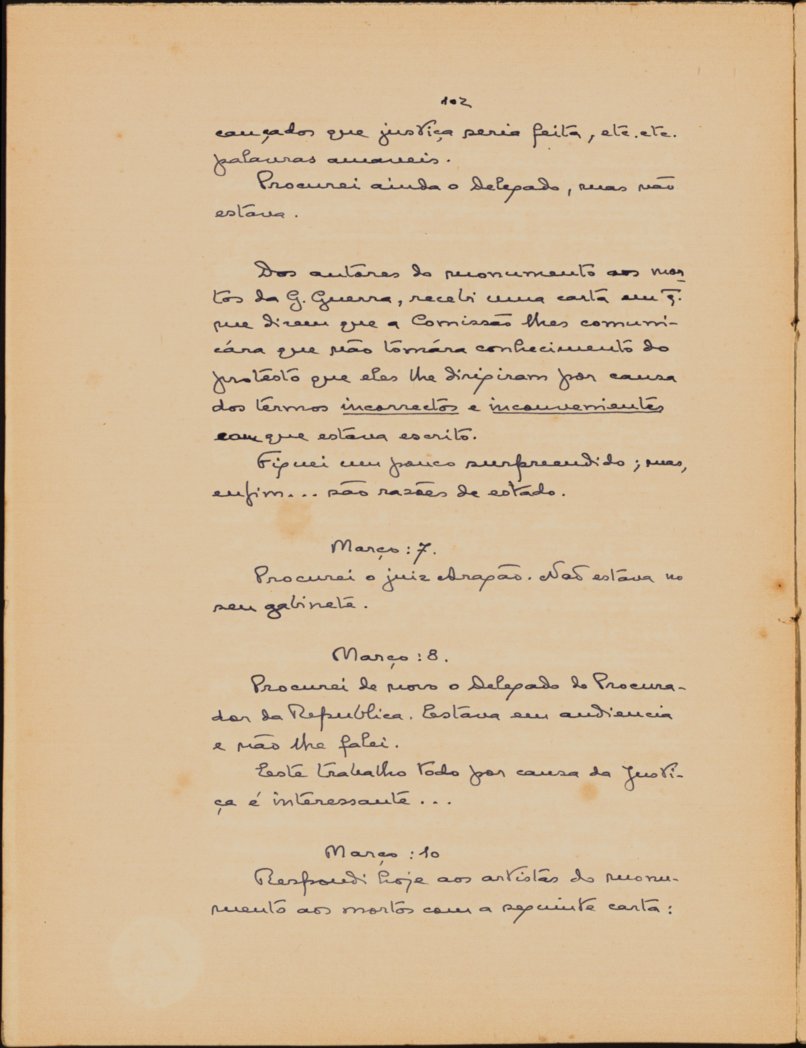 102
cançados que justiça seria feita, etc. etc.
palavras amaveis.
Procurei ainda o Delegado, mas não
estava.
Dos autores do monumento aos mor-
tos da G. Guerra, recebi uma carta em q̃.
me dizem que a Comissão lhes comuni-
cára que não tomára conhecimento do
protesto que eles lhe dirigiram por causa
dos termos incorrectos e inconvenientes
com que estava escrito.
Fiquei um pouco surpreendido; mas,
enfim... são razões de estado.
Março: 7.
Procurei o juiz Aragão. Não estava no
seu gabinete.
Março: 8.
Procurei de novo o Delegado do Procura-
dor da Republica. Estava em audiencia
e não lhe falei.
Este trabalho todo por causa da Justi-
ça é interessante...
Março: 10
Respondi hoje aos artistas do monu-
mento aos mortos com a seguinte carta: